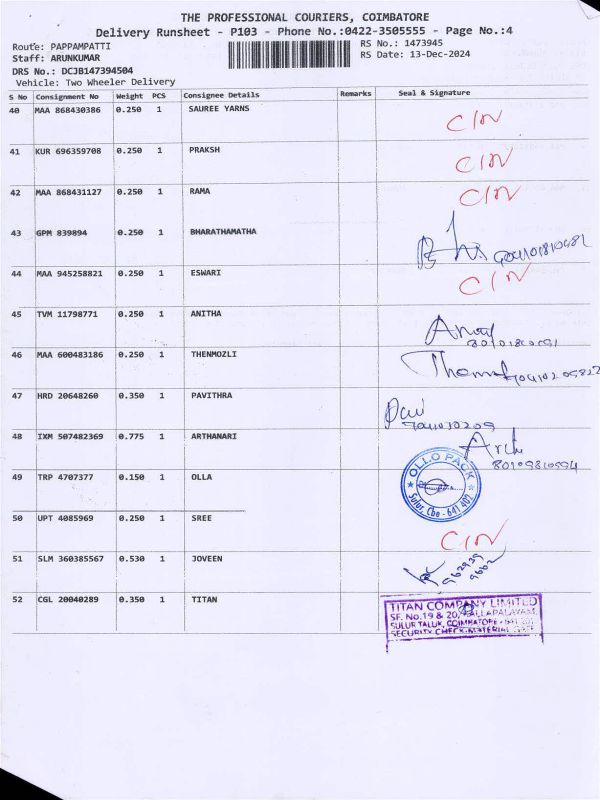 THE PROFESSIONAL COURIERS, COIMBATORE
Delivery Runsheet - P103 - Phone No.:0422-3505555 - Page No.:4
Route: PAPPAMPATTI RS No.: 1473945
Staff: ARUNKUMAR RS Date: 13-Dec-2024
DRS No.: DCJB147394504
Vehicle: Two Wheeler Delivery
S No Consignment No Weight PCS Consignee Details Remarks Seal & Signature
40 MAA 868430386 0.250 1 SAUREE YARNS C/N
41 KUR 696359708 0.250 1 PRAKSH C/N
42 MAA 868431127 0.250 1 RAMA C/N
43 GPM 839894 0.250 1 BHARATHAMATHA
44 MAA 945258821 0.250 1 ESWARI C/N
45 TVM 11798771 0.250 1 ANITHA
46 MAA 600483186 0.250 1 THENMOZLI
47 HRD 20648260 0.350 1 PAVITHRA
48 IXM 507482369 0.775 1 ARTHANARI
49 TRP 4707377 0.150 1 OLLA
OLLO PACK
Sulur, Cbe - 641 402
50 UPT 4085969 0.250 1 SREE C/N
51 SLM 360385567 0.530 1 JOVEEN
52 CGL 20040289 0.350 1 TITAN
TITAN COMPANY LIMITED
SF. No.19 & 20, PALLAPALAYAM,
SULUR TALUK, COIMBATORE
SECURITY CHECK-MATERIAL GATE